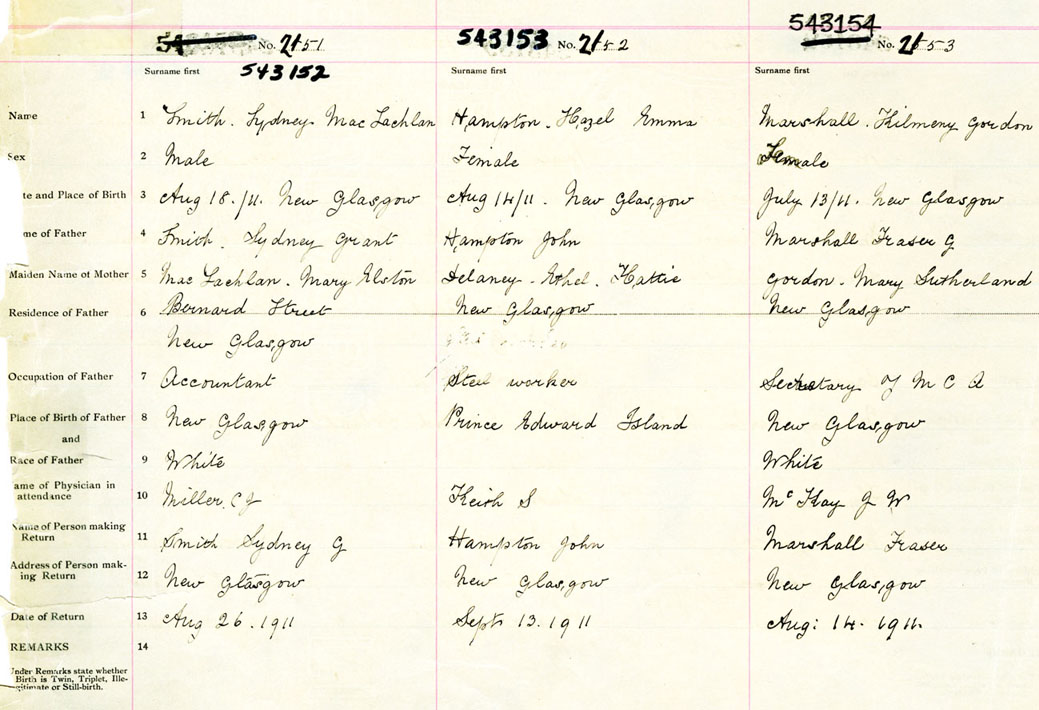 543154
543153 No. 2152
No. 2151
No. 2153
543152
Surname first Surname first Surname first
Name 1 Smith. Sydney MacLachlan Hampton. Hazel Emma Marshall. Kilmeny Gordon
Sex 2 Male Female Female
te and Place of Birth 3 Aug 18./11. New Glasgow Aug 14/11. New Glasgow July 13/11. New Glasgow
me of Father 4 Smith. Sydney Grant Hampton John Marshall Fraser G
Maiden Name of Mother 5 MacLachlan. Mary Elston Delaney. Ethel. Hattie Gordon. Mary Sutherland
Residence of Father 6 Bernard Street New Glasgow New Glasgow
New Glasgow
Occupation of Father 7 Accountant Steel worker Secretary Y M C A
Place of Birth of Father 8 New Glasgow Prince Edward Island New Glasgow
and
Race of Father 9 White White
ame of Physician in
attendance 10 Miller. C J Keith S McKay J W
Name of Person making
Return 11 Smith Sydney G Hampton John Marshall Fraser
Address of Person mak-
ing Return 12 New Glasgow New Glasgow New Glasgow
Date of Return 13 Aug 26. 1911 Sept 13. 1911 Aug: 14. 1911.
REMARKS 14
Under Remarks state whether
Birth is Twin, Triplet, Ille-
gitimate or Still-birth.